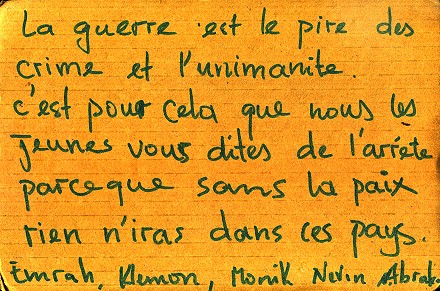 La guerre est le pire des
crime et l'unimanite.
c'est pour cela que nous les
jeunes vous dites de l'arrete
parceque sans la paix
rien n'iras dans ces pays.
Emrah, Klemon, Monik Nivin